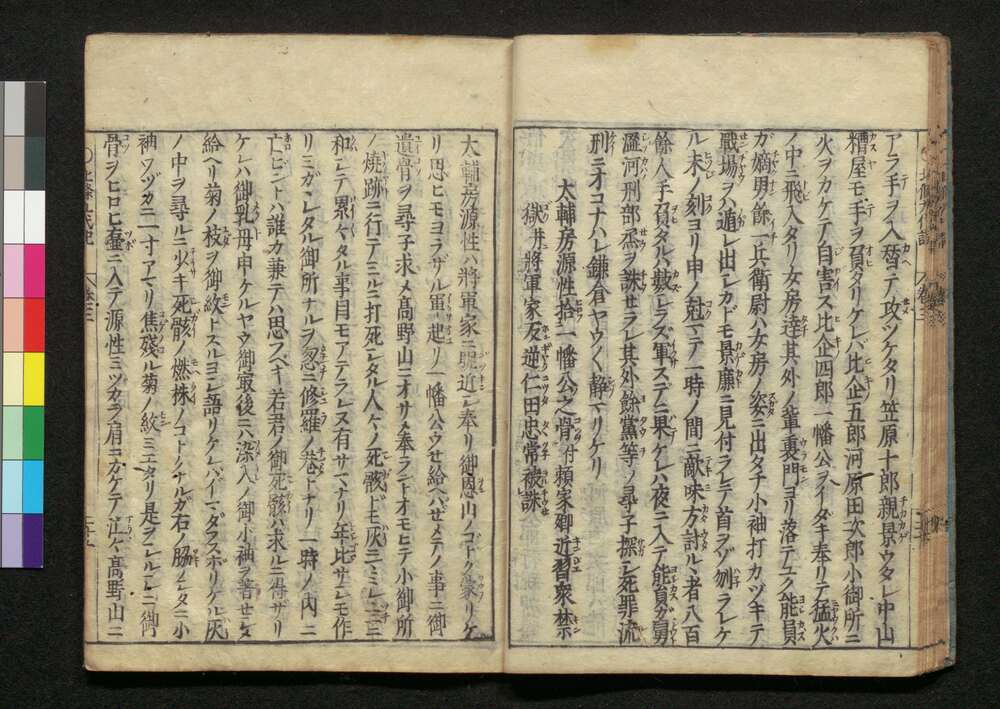 アラ手ヲ入替ヘテ攻ツケタリ笠原十郎親景ウタレ中山
糟屋モ手ヲ負タリケレバ比企五郎河原田次郎小御所ニ
火ヲカケテ自害ス比企四郎一幡公ヲイダキ奉リテ猛火
ノ中ニ飛入タリ女房達其外ノ輩裏門ヨリ落テユク能員
ガ嫡男餘一兵衛尉ハ女房ノ姿ニ出タチ小袖打カツキテ
戰場ヲ遁レ出シカドモ景廉ニ見付ラレテ首ヲゾ刎ラレケ
ル未ノ刻ヨリ申ノ尅マテ一時ノ間ニ敵味方討ルヽ者八百
餘人手負タルハ數シラズ軍ステニ果ケレハ夜ニ入テ能員ガ舅
澁河刑部丞ヲ誅せラレ其外餘黨等ノ尋子探シ死罪流
刑ニオコナハレ鎌倉ヤウ〱静マリケリ
大輔房源性拾一幡公之骨付頼家卿近習衆禁
獄并將軍家反逆仁田忠常被誅
大輔房源性ハ將軍家ニ昵近シ奉リ御恩山ノゴトク蒙リケ
リ思ヒモヨラザル軍起リ一幡公ウせ給ヘバせメテノ事ニ御
遺骨ヲ尋子求メ髙野山ニオサメ奉ラントオモヒテ小御所
ノ燒跡ニ行テミルニ打死シタル人々ノ死骸ドモ灰ニマミレ
和シテ累々タル事目モアテラレス有サマナリ年比サシモ作
リミガヽレタル御所ナルヲ忽ニ修羅ノ巷トナリ一時ノ内ニ
亡ビントハ誰カ兼テハ思フベキ若君ノ御死骸ハ求ルニ得ザリ
ケレハ御乳母申ケルヤウ御寂後ニハ染入ノ御小袖ヲ著せラ
給ヘリ菊ノ枝ヲ御紋トスルヨシ語リケレバイマダクスボリケル灰
ノ中ヲ尋ルニ少キ死骸ノ燃株ノコトクナルガ右ノ脇ノシタニ小
袖ワヅカ二一寸アマリ焦殘ル菊ノ紋ミエタリ是ヲシルシニ御
骨ヲヒロヒ壷ニ入テ源性ミツカラ肩ニカケテ泣々髙野山ニ